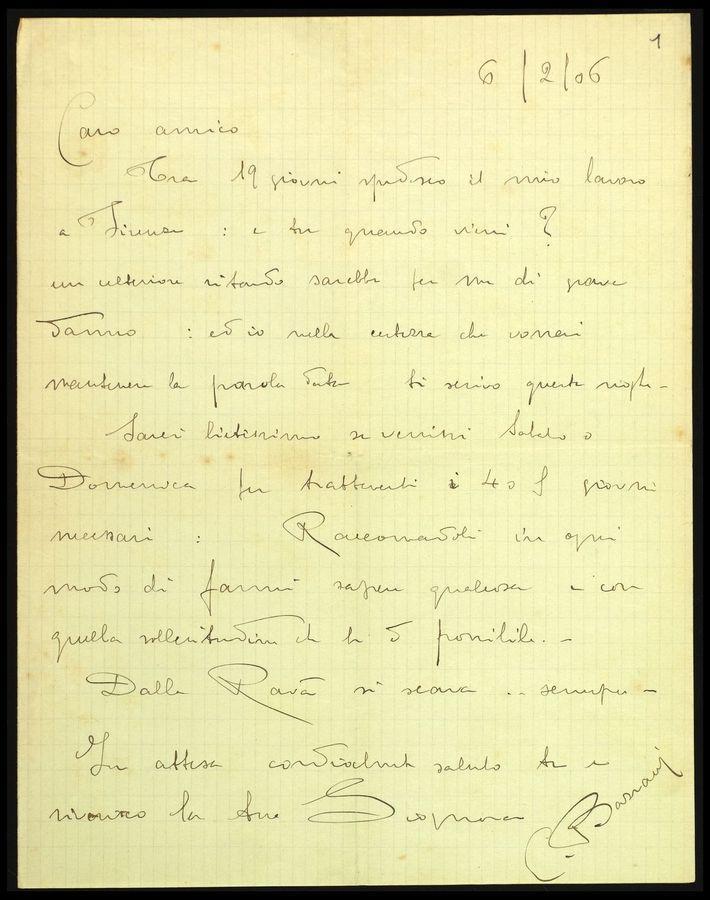 1
6/2/06
Caro amico
Tra 19 giorni spedisco il mio lavoro
a Firenze : e tu quando vieni ?
un ulteriore ritardo sarebbe per me di grave
danno : ed io nella certezza che vorrai
mantenere la parola data ti scrivo queste righe -
Sarei lietissimo se venissi Sabato o
Domenica per trattenerti i 4 o 5 giorni
necessari : Raccomandoti in ogni
modo di farmi sapere qualcosa e con
quella sollecitudine che ti è possibile. -
Dalla Ravà si scava .. sempre -
In attesa cordialmente saluto te e
riverisco la tua Signora
Bassani